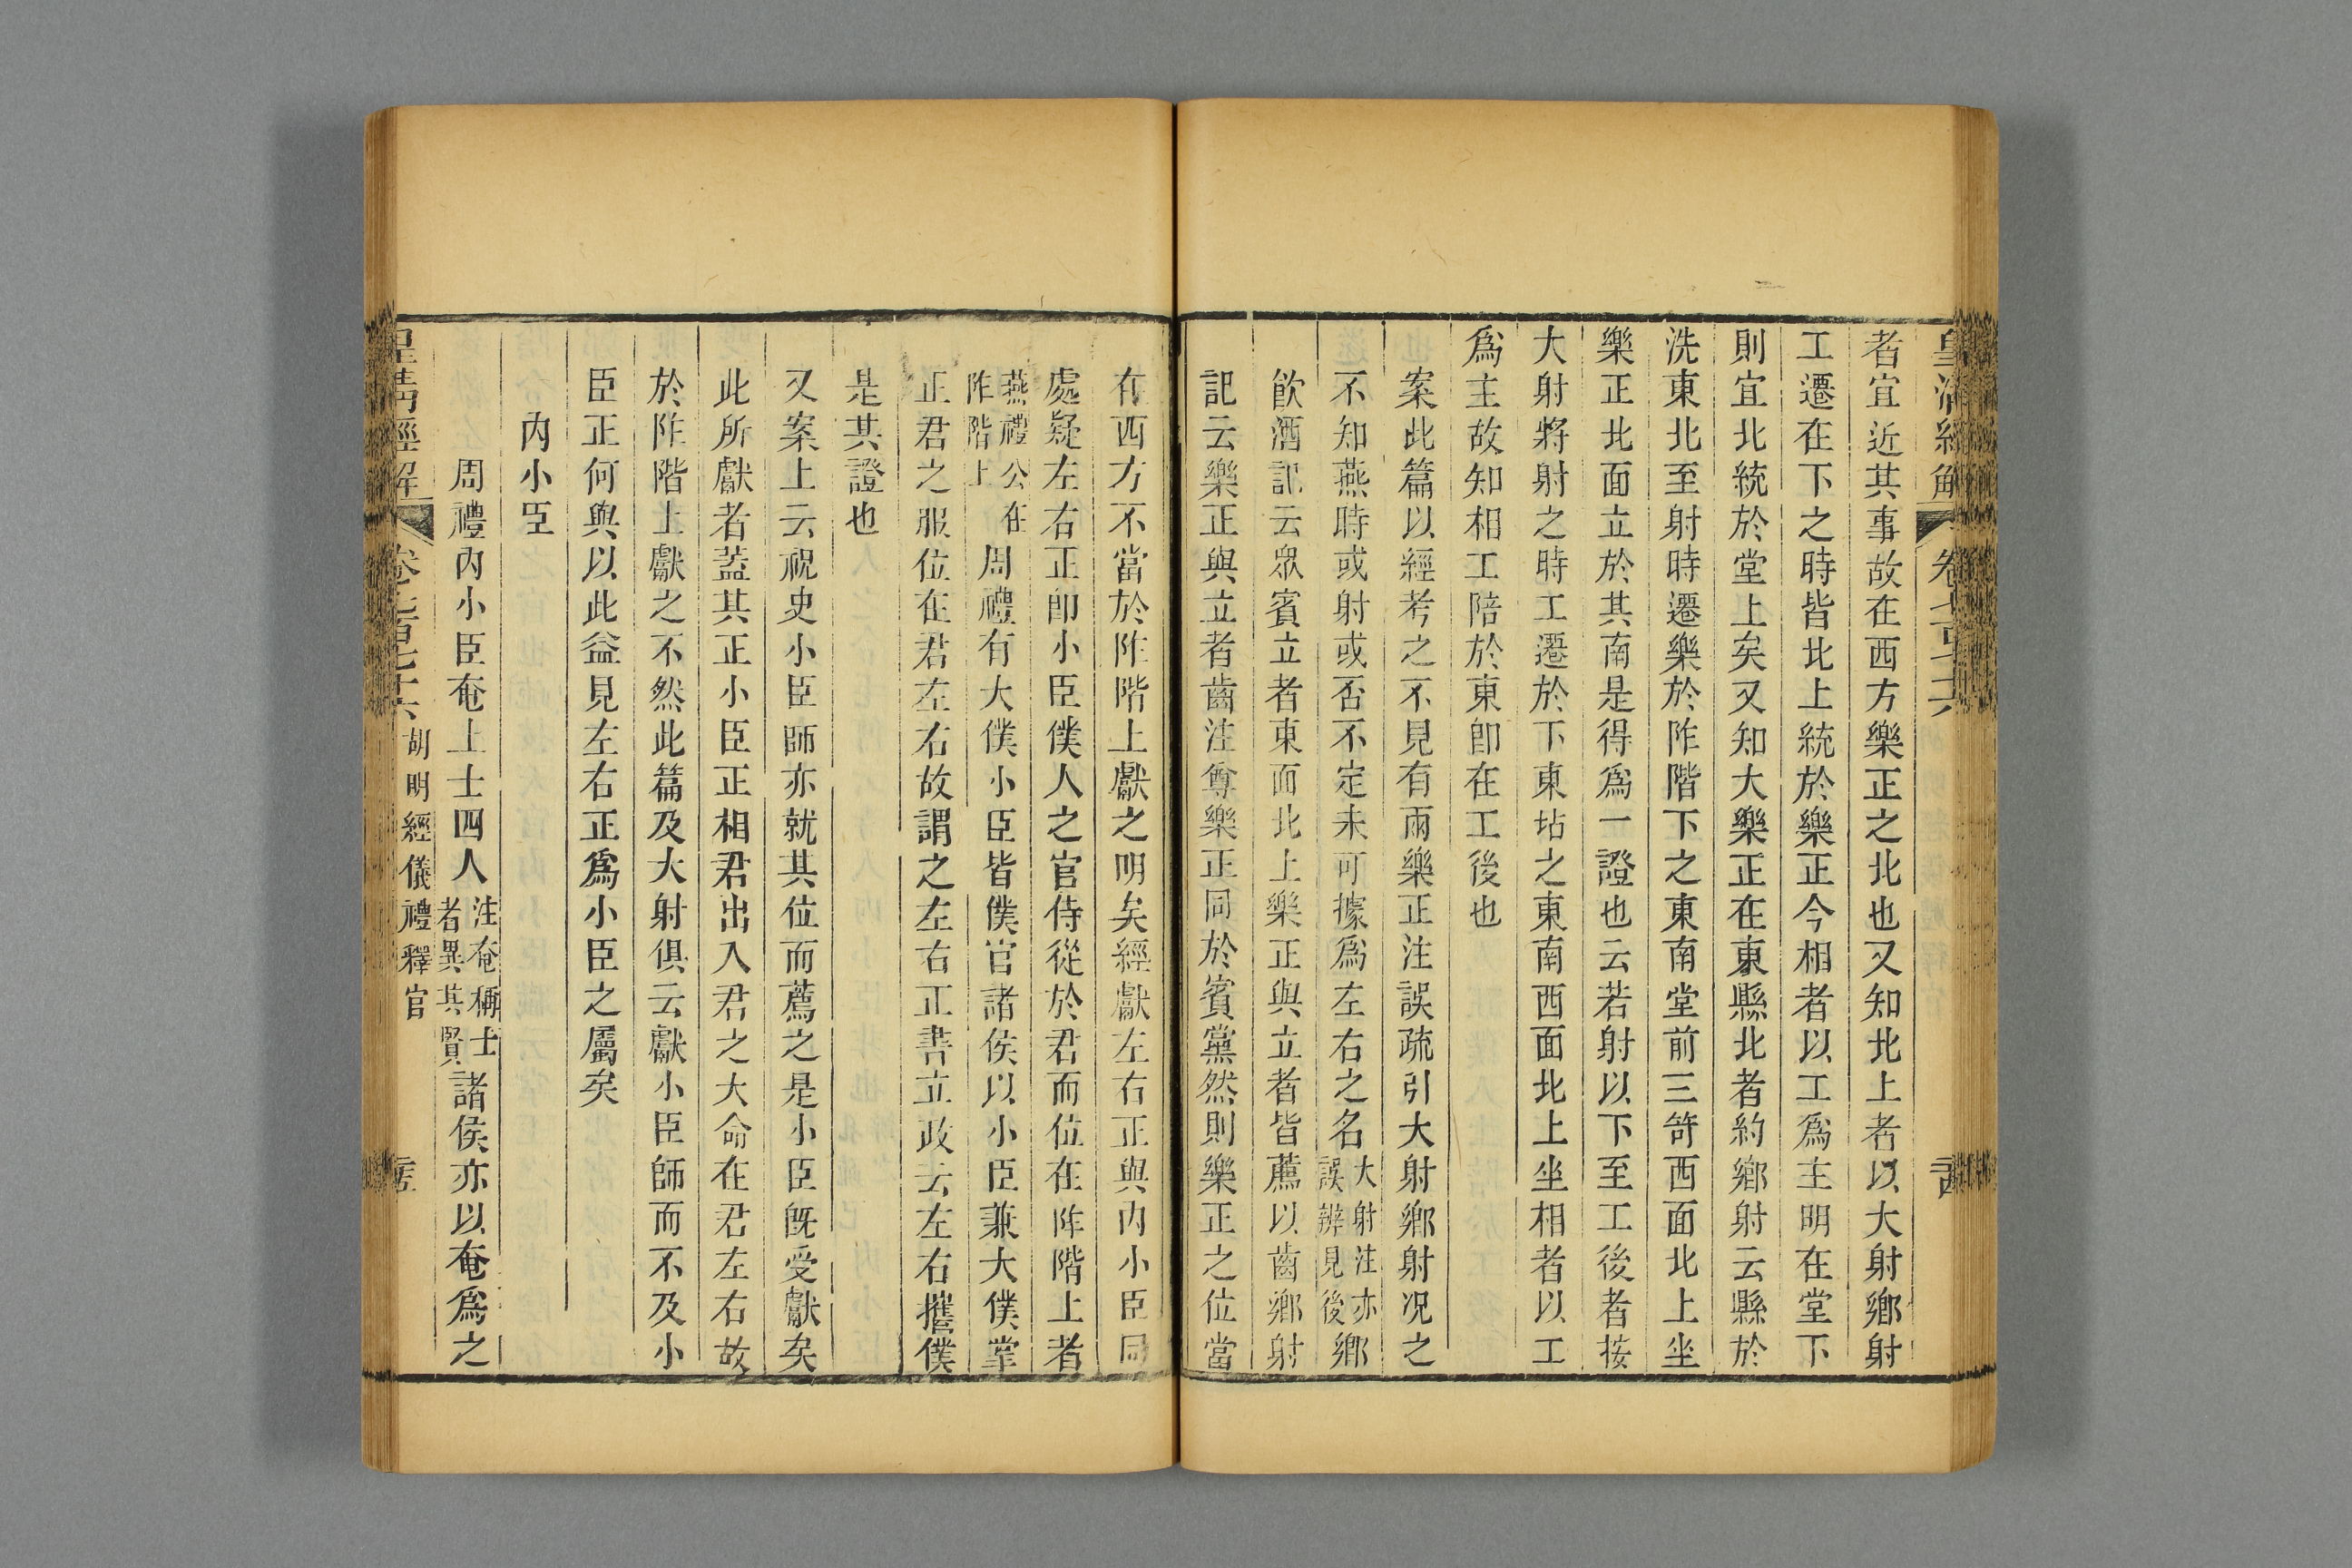 皇清經解 卷七百七十六
者宜近其事故在西方樂正之北也又知北上者以大射鄉射
工遷在下之時皆北上統於樂正今相者以工爲主明在堂下
則宜北統於堂上矣又知大樂正在東縣北者約鄉射云縣於
洗東北至射時遷樂於阼階下之東南堂前三笴西面北上坐
樂正北面立於其南是得爲一證也云若射以下至工後者按
大射將射之時工遷於下東坫之東南西面北上坐相者以工
爲主故知相工陪於東卽在工後也
案此篇以經考之不見有兩樂正注誤疏引大射鄉射况之
不知燕時或射或否不定未可據爲左右之名大射注亦誤辨見後鄉
飲酒記云眾賓立者東面北上樂正與立者皆薦以齒鄉射
記云樂正與立者齒注尊樂正同於賓黨然則樂正之位當
在西方不當於阼階上獻之明矣經獻左右正與內小臣同
處疑左右正卽小臣僕人之官侍從於君而位在阼階上者
燕禮公在阼階上周禮有大僕小臣皆僕官諸侯以小臣兼大僕掌
正君之服位在君左右故謂之左右正書立政云左右攜僕
是其證也
又案上云祝史小臣師亦就其位而薦之是小臣旣受獻矣
此所獻者蓋其正小臣正相君出入君之大命在君左右故
於阼階上獻之不然此篇及大射俱云獻小臣師而不及小
臣正何與以此益見左右正爲小臣之屬矣
內小臣
周禮內小臣奄上士四人注奄稱士者異其賢諸侯亦以奄爲之
皇清經解 卷七百七十六 胡明經儀禮釋官